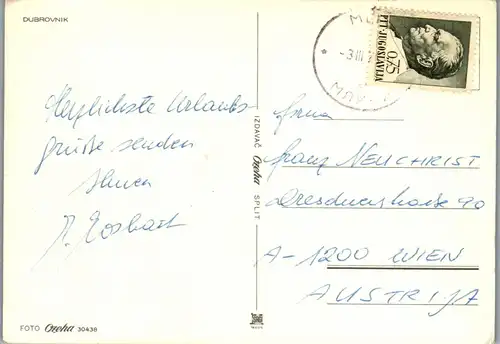 DUBROVNIK
Herzlichste Urlaubs-
grüße senden
Ihnen
FOTO Ozeha 30438
IZDAVAČ Ozeha SPLIT
-3 III
0,75
PTT JUGOSLAVIJA
Firma
Franz NEUCHRIST
Dresdnerstraße 90
A-1200 WIEN
AUSTRIJA